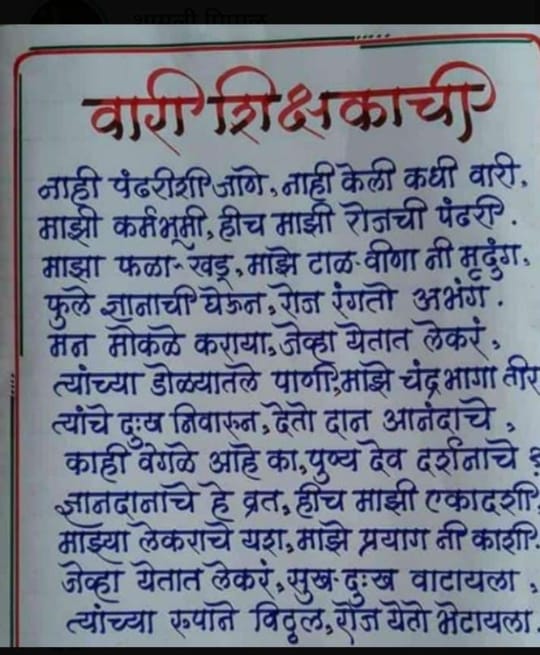 वारी शिक्षकाची
नाही पंढरीशी जाणे, नाही केली कधी वारी,
माझी कर्मभूमी, हीच माझी रोजची पंढरी.
माझा फळा-खडू, माझे टाळ-वीणा नी मृदुंग,
फुले ज्ञानाची घेऊन, रोज रंगतो अभंग.
मन मोकळे कराया, जेव्हा येतात लेकरं,
त्यांच्या डोळ्यातले पाणी, माझे चंद्रभागा तीर
त्यांचे दुःख निवारुन, देतो दान आनंदाचे,
काही वेगळे आहे का, पुण्य देव दर्शनाचे ?
ज्ञानदानाचे हे व्रत, हीच माझी एकादशी,
माझ्या लेकराचे यश, माझे प्रयाग नी काशी.
जेव्हा येतात लेकरं, सुख-दुःख वाटायला,
त्यांच्या रुपाने विठ्ठल, रोज येतो भेटायला.